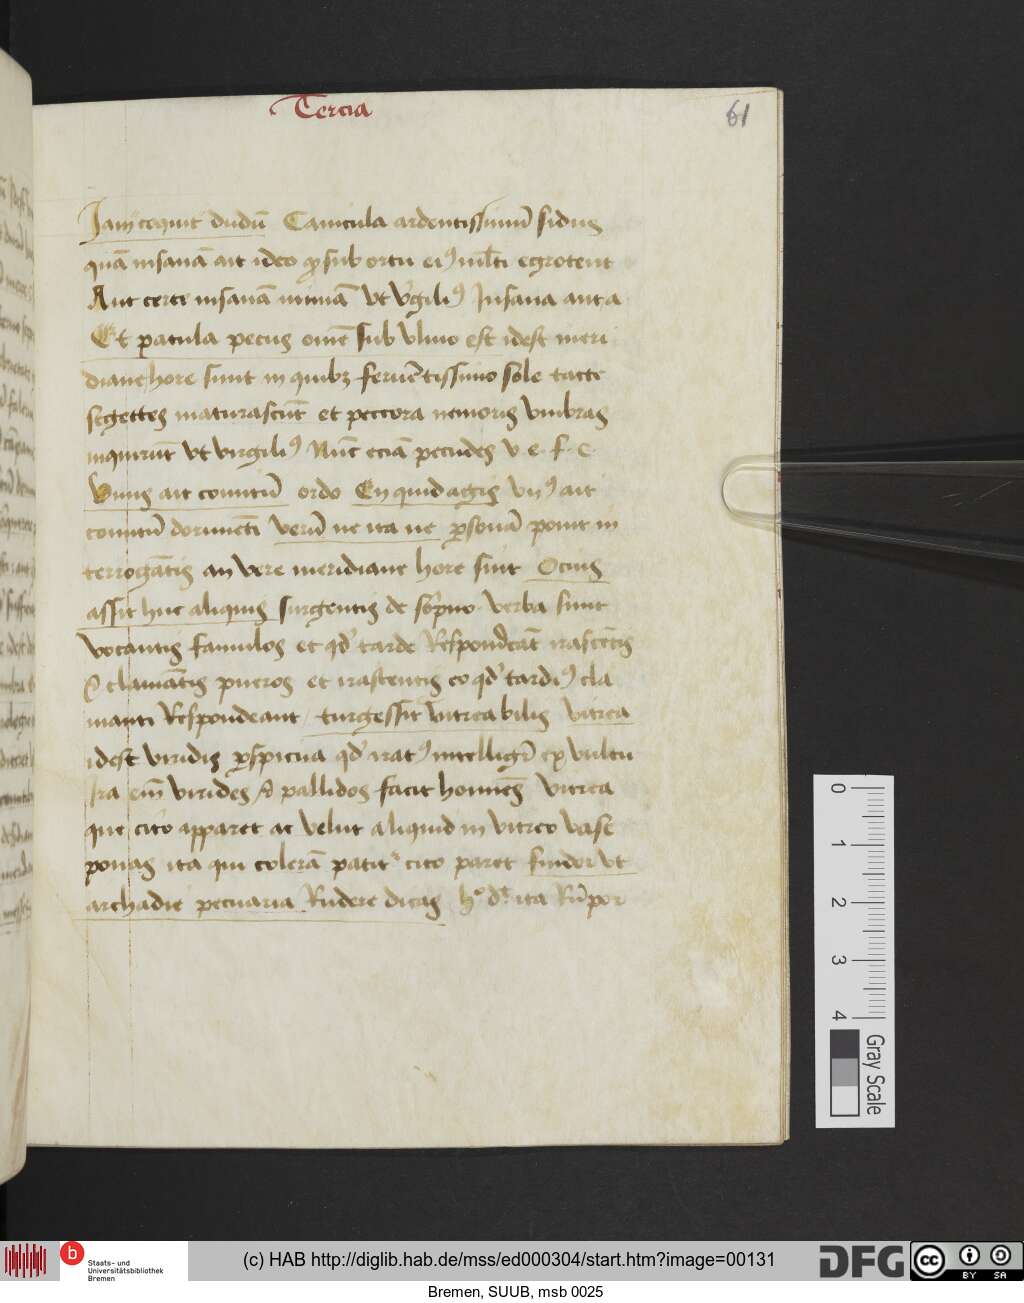 Tercia
61
Iam coquit dudū Canicula ardentissimū sidus
quā insanā ait ideo ꝙ sub ortu eiꝰ mĺti egrotent
Aut certe insanā nimiā vt v̓giliꝰ Insana
Et patula pecus omē sub vlmo est idest meri
diane hore sunt in quibꝫ feruētissimo sole tacte
segettes maturascūt et peccora nemoris vmbras
inquirūt vt virgiliꝰ Nūc eciā pecudes v. e. f. c.
Vnus ait comitū ordo En quid agis vnꝰ ait
comitū dormiēti verū ne ita ne ꝑsonā ponit in
terrogātis an vere meridiane hore sint Ocius
assit huc aliquis surgentis de sōpno verba sunt
vocantis famulos et qd̓ tarde Respondeāt irascētis
clamātis pueros et irascentis eo qd̓ tardiꝰ cla
manti Respondeant turgessit vitrea bilis vitrea
idest viridis ꝑspicua qd̓ iratꝰ intelligit̄ ex vultu
Ira em̄ virides & pallidos facit homines̄ vitrea
que cito apparet ac velut aliquid in vitreo vase
ponas ita qui colerā patit᷑ cito paret findor vt
archadie pecuaria Rudere dicas ita
0
1
2
3
4
Gray Scale
b
Staats- und
Universitätsbibliothek
Bremen
(c) HAB http://diglib.hab.de/mss/ed000304/start.htm?image=00131
DFG
cc
BY SA
Bremen, SUUB, msb 0025